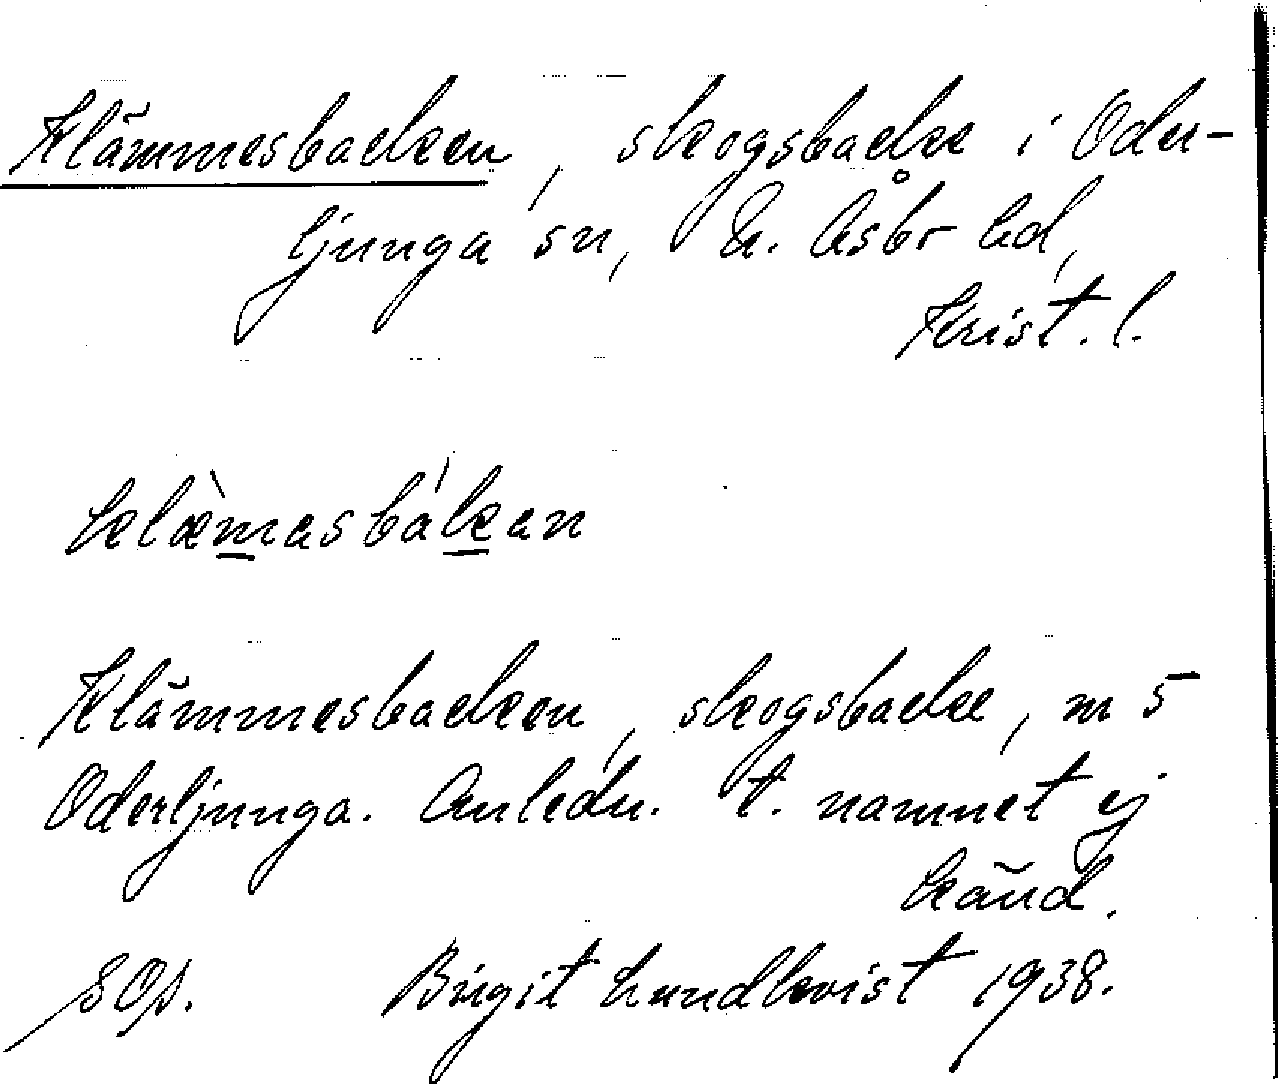 Klämmesbacken, skogsbacke i Oder-
ljunga sn, N. Åsbo hd,
Krist. l.
klæ̀mesbákan
Klämmesbacken, skogsbacke, nr 5
Oderljunga. Anledn. t. namnet ej
känd.
SOp. Birgit Lundkvist 1938.